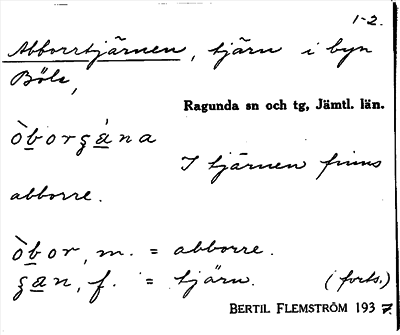 1-2.
Abborrtjärnen, tjärn i byn
Böle,
Ragunda sn och tg, Jämtl. län.
òborgá̱na
I tjärnen finns
abborre.
òbor, m. = abborre.
ga̱n, f. = tjärn. (forts.)
BERTIL FLEMSTRÖM 1937.